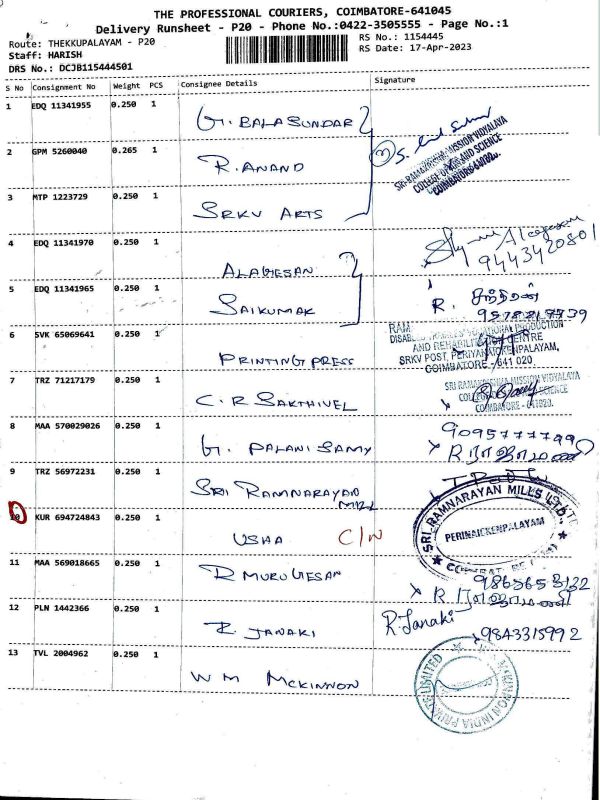 THE PROFESSIONAL COURIERS, COIMBATORE-641045
Delivery Runsheet - P20 - Phone No.:0422-3505555 - Page No.:1
Route: THEKKUPALAYAM - P20
Staff: HARISH
DRS No.: DCJB115444501
RS No.: 1154445
RS Date: 17-Apr-2023
S No Consignment No Weight PCS Consignee Details Signature
1 EDQ 11341955 0.250 1 G. BALASUNDAR
2 GPM 5260040 0.265 1 R. ANAND
SRI RAMAKRISHNA MISSION VIDYALAYA
COLLEGE OF ARTS AND SCIENCE
COIMBATORE
3 MTP 1223729 0.250 1 SRKV ARTS
4 EDQ 11341970 0.250 1 ALAGESAN
9443420801
5 EDQ 11341965 0.250 1 SAIKUMAR
R.
6 SVK 65069641 0.250 1 PRINTING PRESS
AND REHABILITATION CENTRE
SRKV POST, PERIYANAICKENPALAYAM,
COIMBATORE - 641 020
7 TRZ 71217179 0.250 1 C. R SAKTHIVEL
SRI RAMAKRISHNA MISSION VIDYALAYA
COIMBATORE - 641020.
8 MAA 570029026 0.250 1 G. PALANI SAMY
9 TRZ 56972231 0.250 1 SRI RAMNARAYAN MILL
SRI-RAMNARAYAN MILLS LTD.,
PERINAICKENPALAYAM
10 KUR 694724843 0.250 1 USHA C/N
11 MAA 569018665 0.250 1 R MURUGESAN
12 PLN 1442366 0.250 1 R. JANAKI R. Janaki
9843315992
13 TVL 2004962 0.250 1 W M MCKINNON
INDIA PRIVATE LIMITED